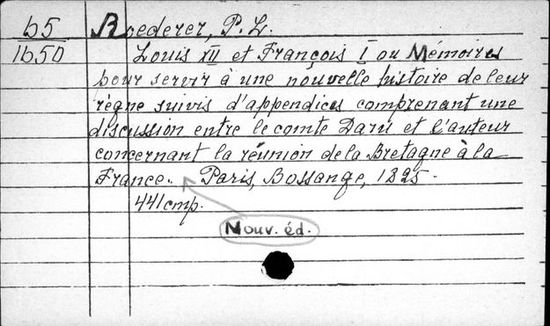 65 Roederer, P. L.
1650 Louis XII et François I ou Mémoires
pour servir à une nouvelle histoire de leur
règne suivis d'appendices comprenant une
discussion entre le comte Daru et l'auteur
concernant la réunion de la Bretagne à la
France. Paris, Bossange, 1825.
441cmp.
Nouv. éd.